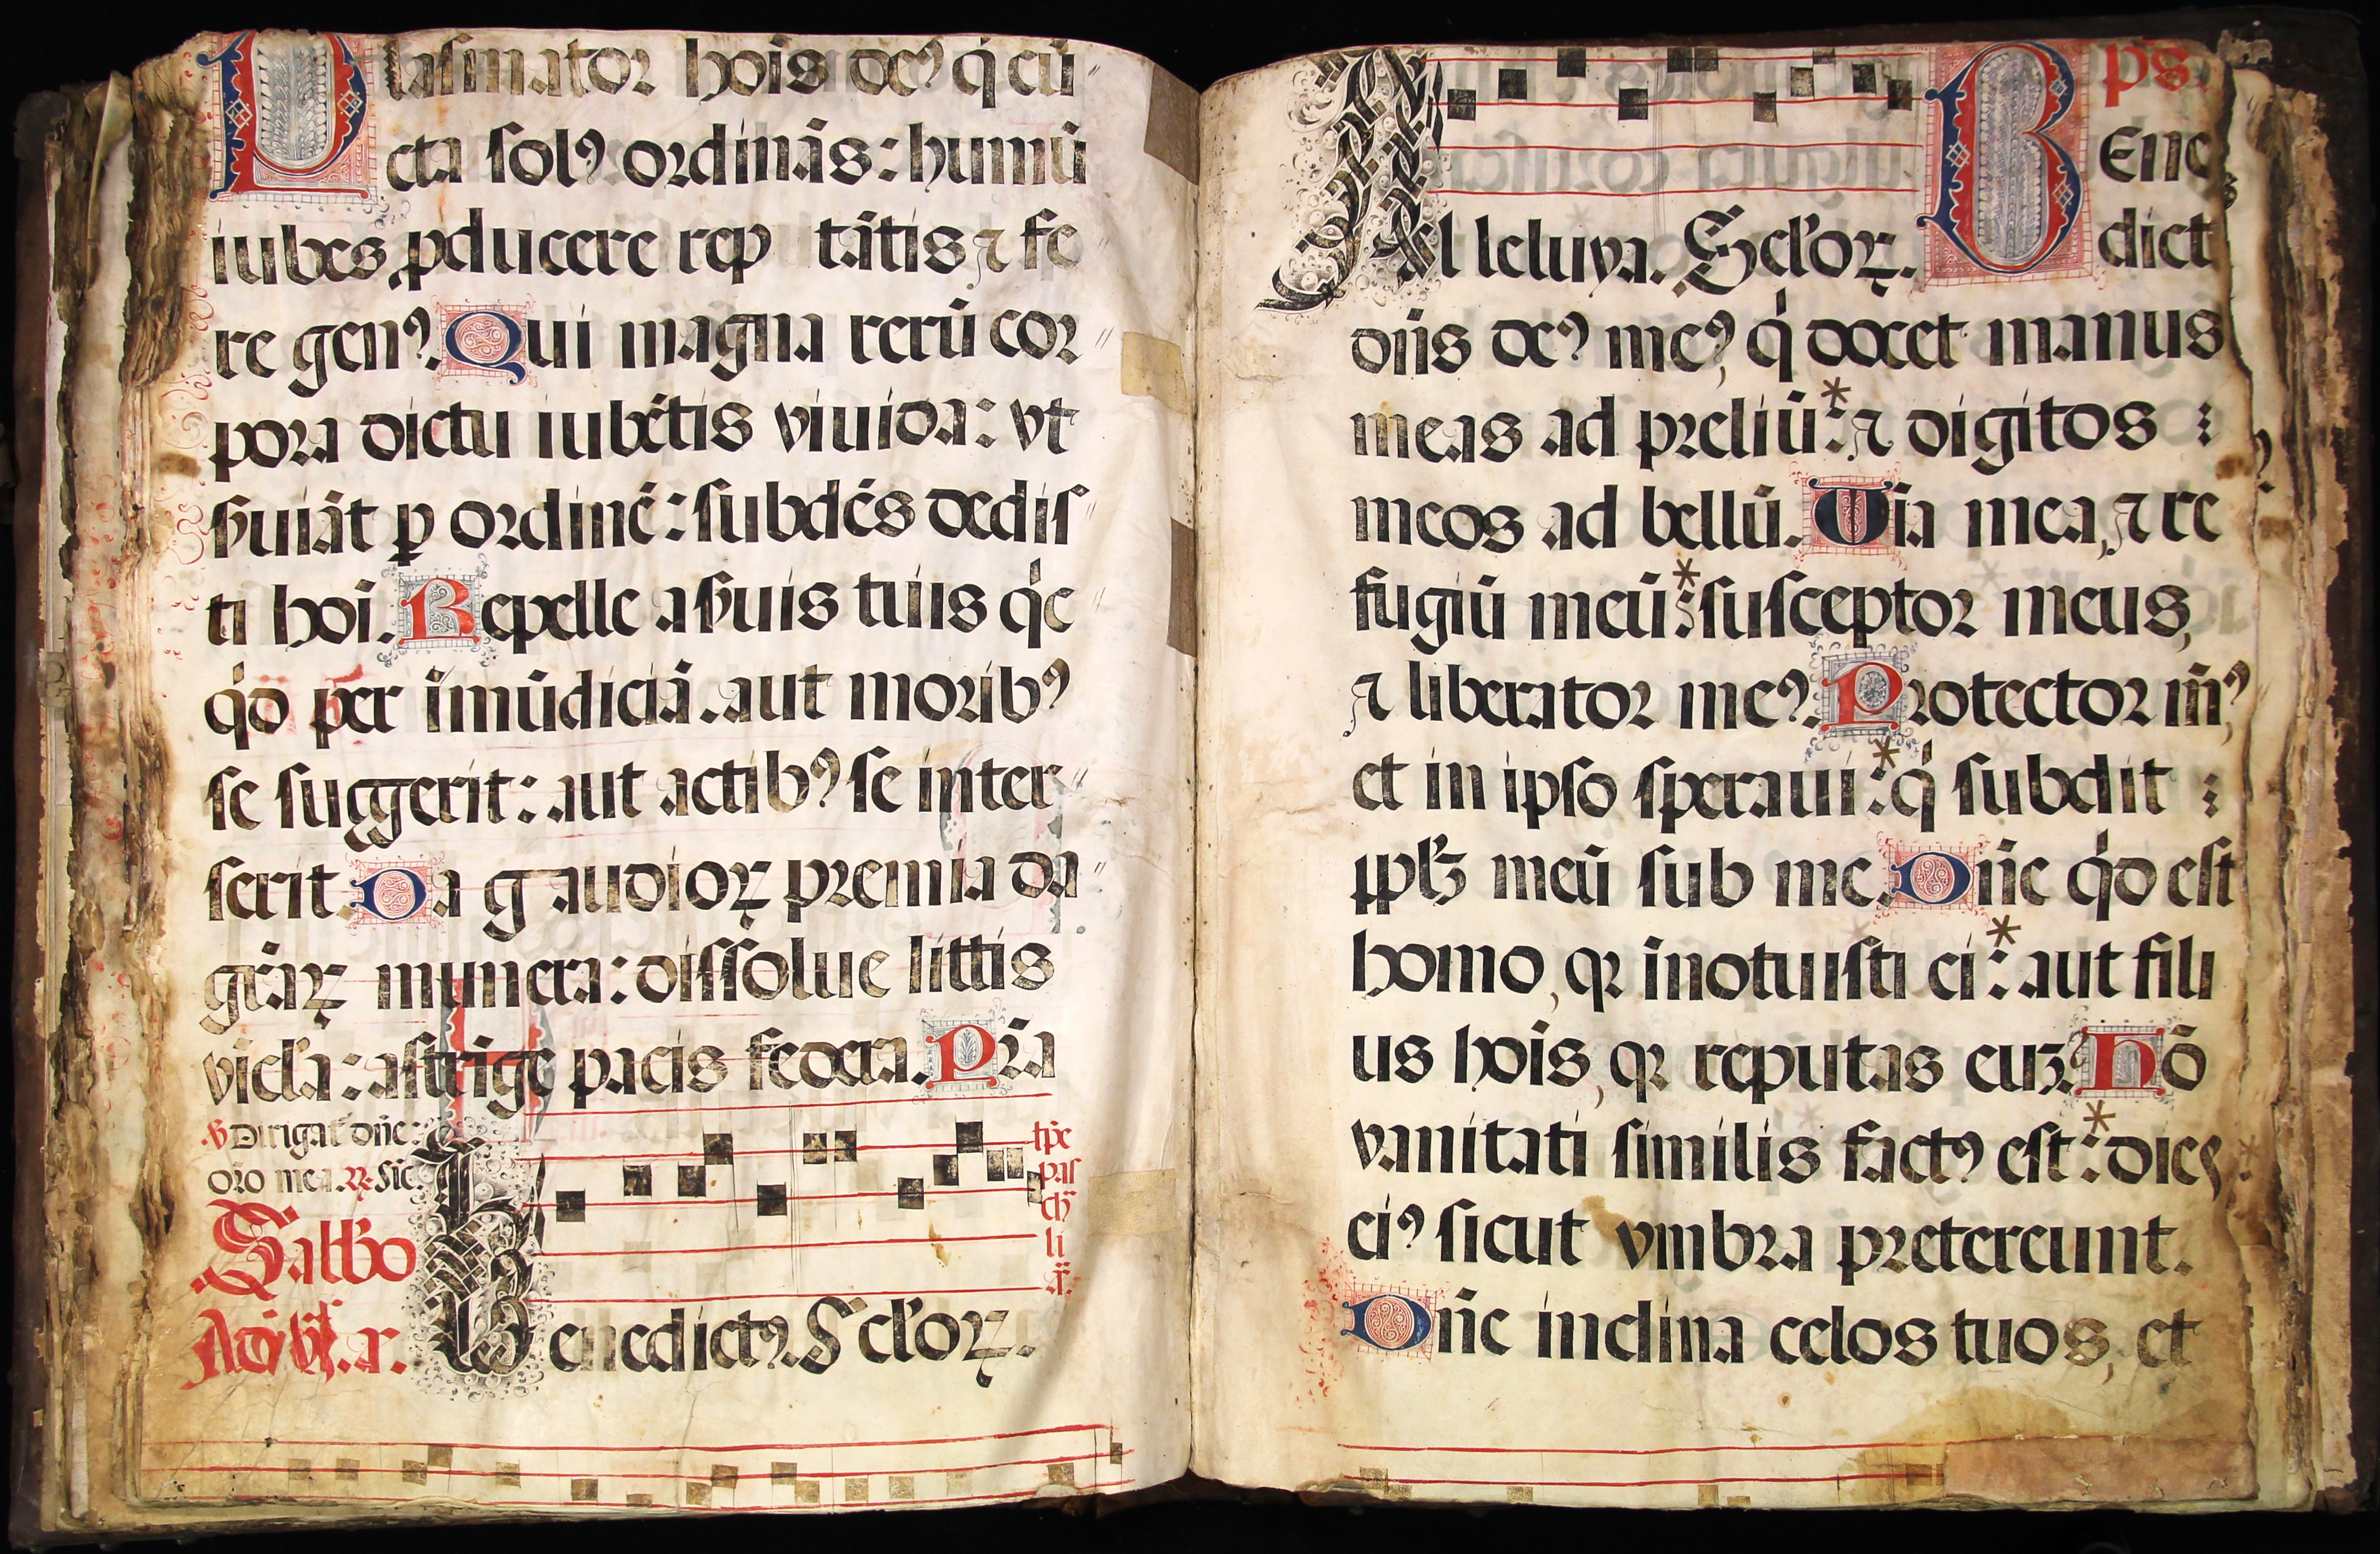 Plasmator hoĩs deꝰ q̇ cũ
cta solꝰ ordinãs: humũ
iubes ꝓducere rep tãtis ⁊ fe
re genꝰ. Qui magna rerũ cor
pora dictu iubẽtis viuida: vt
ẜuiãt ꝑ ordinẽ: subdẽs dedis
ti hoĩ. Repelle a ẜuis tuis q̇c
q̇d per ĩmũdiciã. aut moribꝰ
se suggerit: aut actibꝰ se inter
serit. Da gaudioꝝ premia da
gr̃aꝝ munera: dissolue littis
vicl̃a: astrige pacis federa. Pr̃a
ẜ Dirigat̃ dñe
or̃o mea. ℟. Sic̃
tp̃e
pas
ch̃
li
Benedictꝰ. Sc̃loꝝ.
ps.
Al leluya. Sc̃loꝝ.
Bene
dict
dñs deꝰ meꝰ, q̇ docet manus
meas ad preliũ:* ⁊ digitos
meos ad bellũ. Mia mea, ⁊ re
fugiũ meũ:* susceptor meus,
⁊ liberator meꝰ. Protector mꝰ̃,
et in ipso speraui:* q̇ subdit
pp̃lꝫ meũ sub me. Dñe q̇d est
homo, qꝛ ĩnotuisti ei:* aut fili
us hoĩs, qꝛ reputas euꝫ? Hõ
vanitati similis factꝰ est:* dies
eiꝰ sicut vmbra pretereunt.
Dñe inclina celos tuos, et